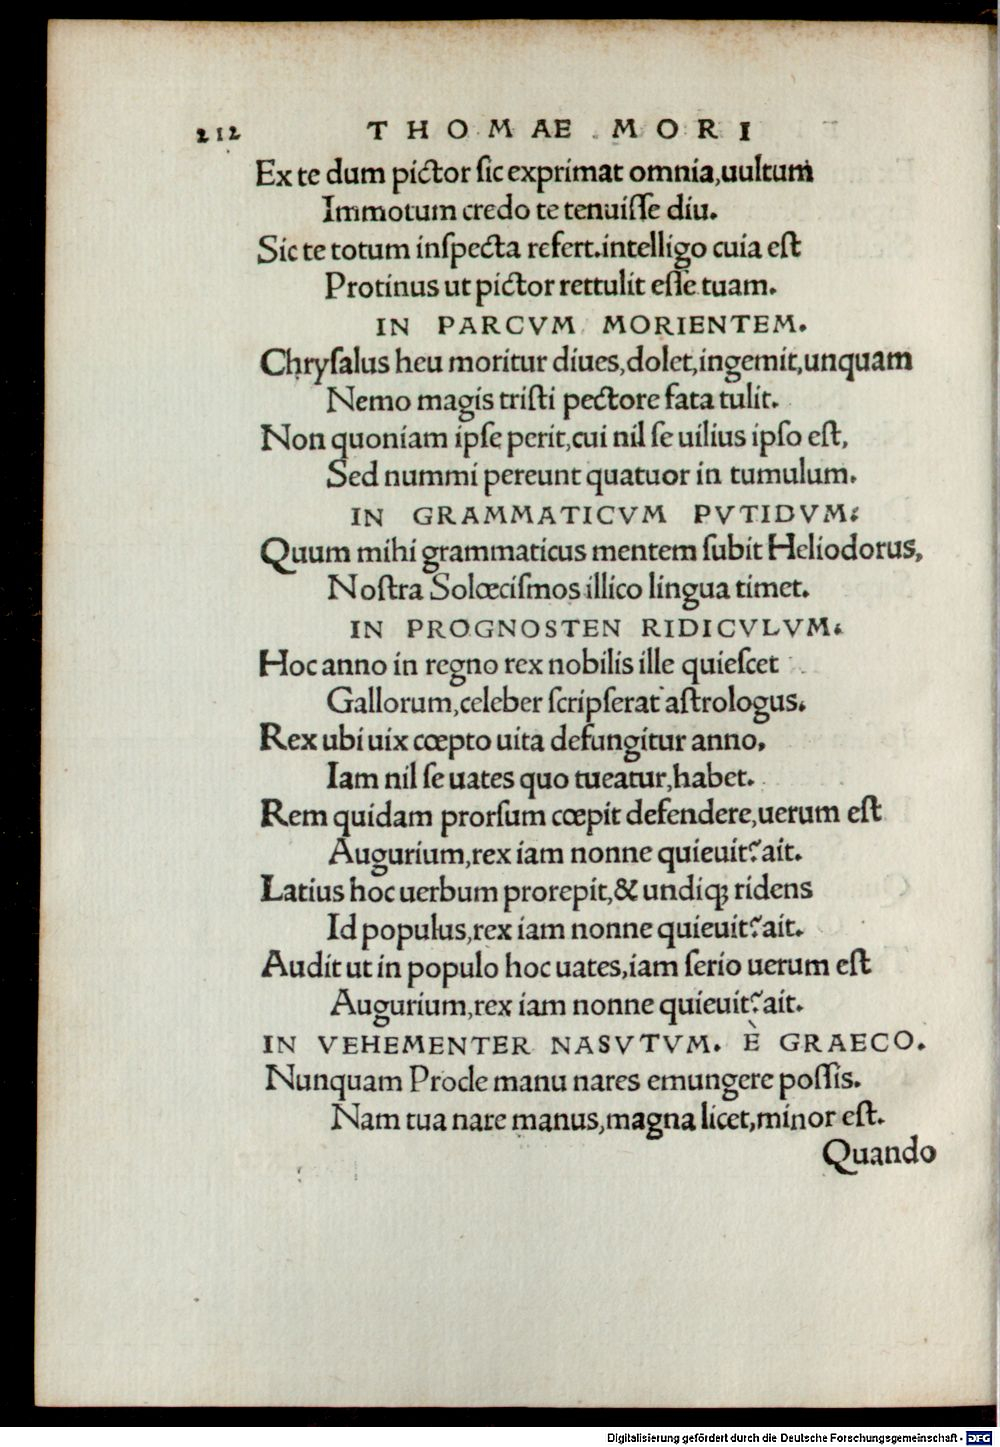 212 THOMAE MORI
Ex te dum pictor ſic exprimat omnia,uultum
Immotum credo te tenuiſſe diu.
Sic te totum inſpecta refert.intelligo cuia eſt
Protinus ut pictor rettulit eſſe tuam.
IN PARCVM MORIENTEM.
Chryſalus heu moritur diues,dolet,ingemit,unquam
Nemo magis triſti pectore fata tulit.
Non quoniam ipſe perit,cui nil ſe uilius ipſo eſt,
Sed nummi pereunt quatuor in tumulum.
IN GRAMMATICVM PVTIDVM.
Quum mihi grammaticus mentem ſubit Heliodorus,
Noſtra Solœciſmos illico lingua timet.
IN PROGNOSTEN RIDICVLVM.
Hoc anno in regno rex nobilis ille quieſcet
Gallorum,celeber ſcripſerat aſtrologus.
Rex ubi uix cœpto uita defungitur anno,
Iam nil ſe uates quo tueatur,habet.
Rem quidam prorſum cœpit defendere,uerum eſt
Augurium,rex iam nonne quieuit?ait.
Latius hoc uerbum prorepit,& undiqꝫ ridens
Id populus,rex iam nonne quieuit?ait.
Audit ut in populo hoc uates,iam ſerio uerum eſt
Augurium,rex iam nonne quieuit?ait.
IN VEHEMENTER NASVTVM. È GRAECO.
Nunquam Procle manu nares emungere poſſis.
Nam tua nare manus,magna licet,minor eſt.
Quando
Digitalisierung gefördert durch die Deutsche Forschungsgemeinschaft - DFG